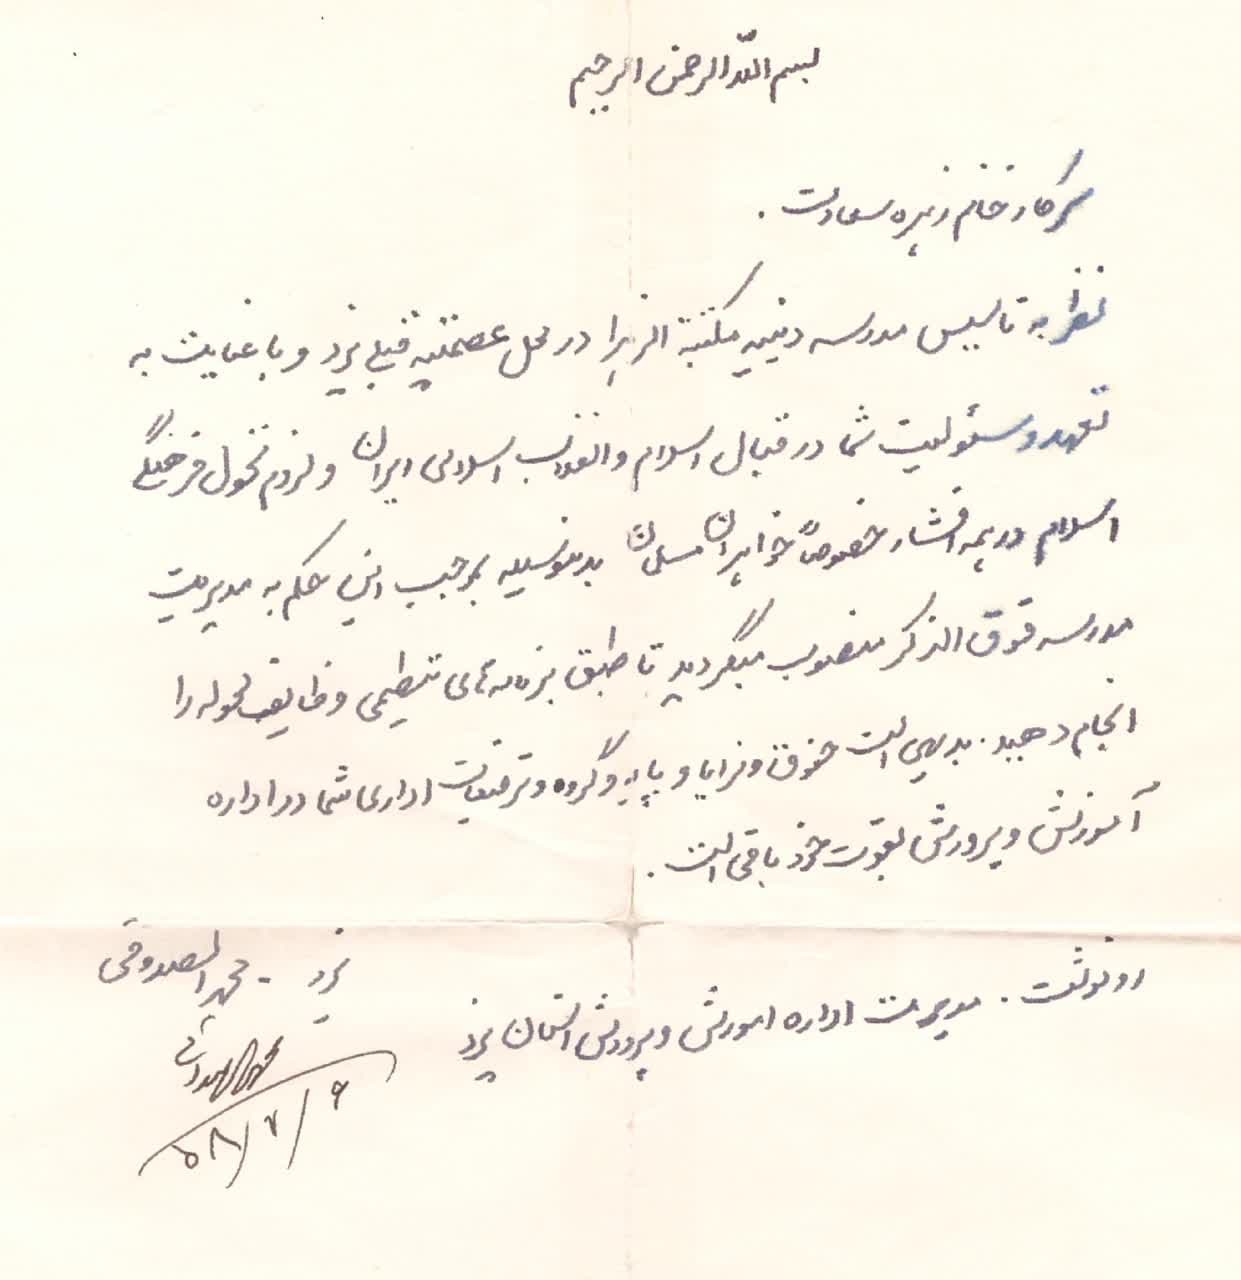 بسم الله الرحمن الرحیم
سرکار خانم زهره سعادت .
نظر به تاسیس مدرسه دینیه مکتبة الزهرا در محل عصمتیه قبلی یزد و با عنایت به
تعهد و مسئولیت شما در قبال اسلام و انقلاب اسلامی ایران و لزوم تحول فرهنگی
اسلام در همه اقشار خصوصاً خواهران مسلمان بدینوسیله بموجب این حکم به مدیریت
مدرسه فوق الذکر منصوب میگردید تا طبق برنامه های تنظیمی وظایف محوله را
انجام دهید . بدیهی است حقوق و مزایا و پایه و گروه و ترفیعات اداری شما در اداره
آموزش و پرورش بقوت خود باقی است .
یزد - محمد الصدوقی
رونوشت . مدیریت اداره اموزش و پرورش استان یزد
۵۸/۷/۶